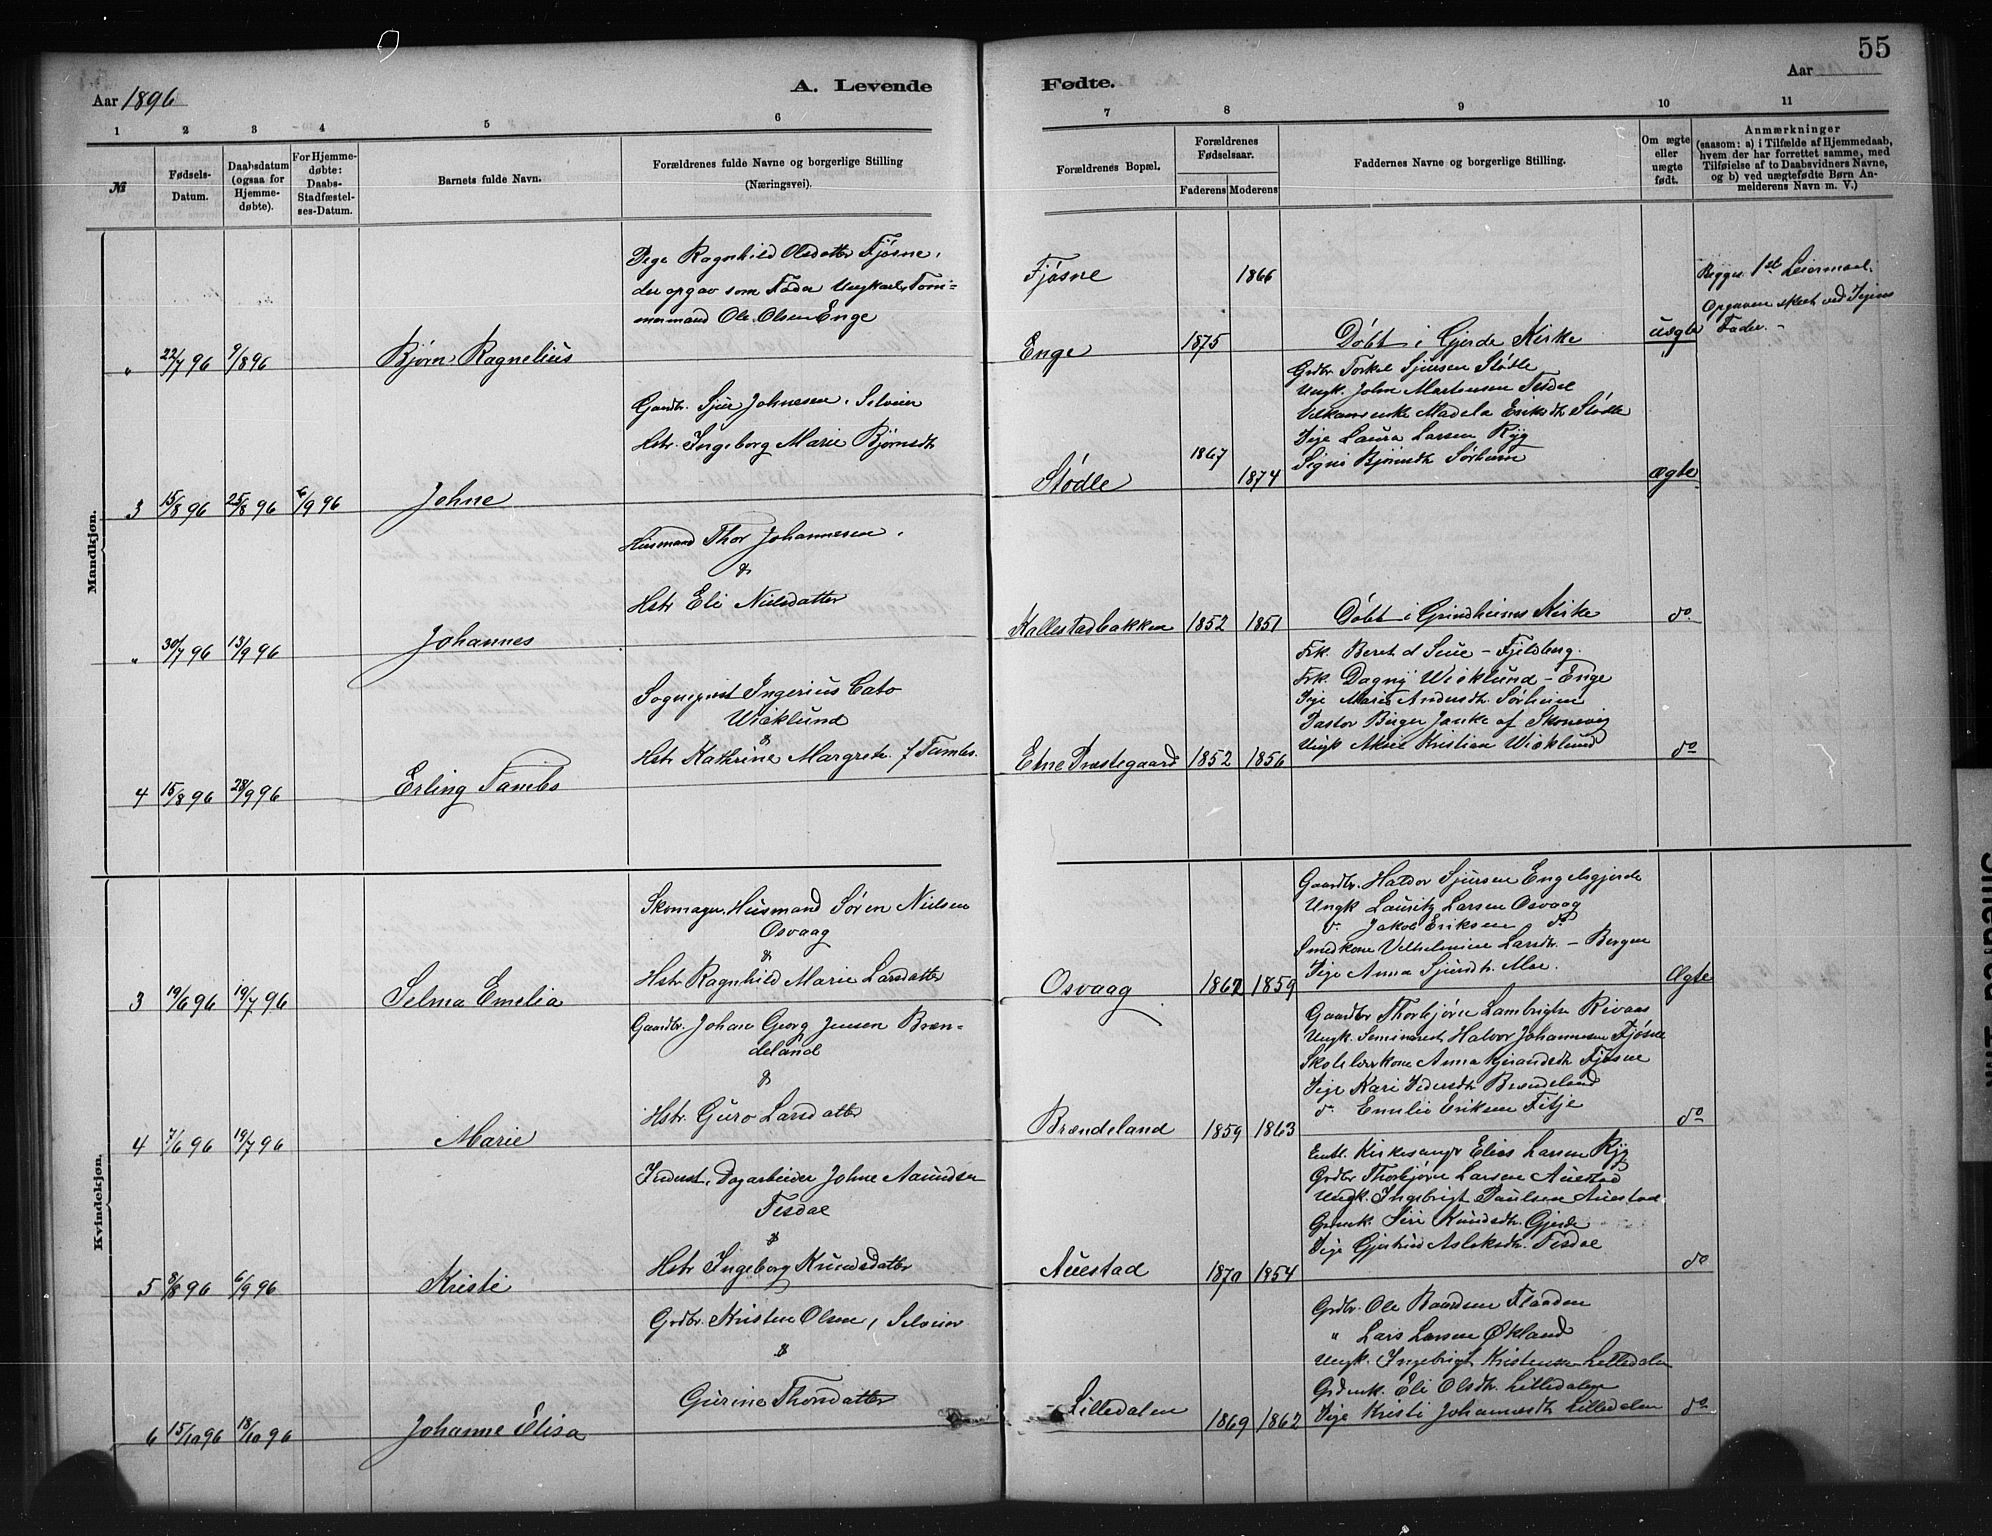 55
Aar 1896
A. Levende Fødte.
Aar
1 2 3 4 5 6 7 8 9 10 11
№
Fødsels-
Datum.
Daabsdatum
(ogsaa for
Hjemme-
døbte).
For Hjemme-
døbte:
Daabs-
Stadfæstel-
ses-Datum.
Barnets fulde Navn.
Forældrenes fulde Navne og borgerlige Stilling
(Næringsvei).
Forældrenes Bopæl.
Forældrenes
Fødselsaar.
Faderens Moderens
Faddernes Navne og borgerlige Stilling.
Om ægte
eller
uægte
født.
Anmærkninger
(saasom: a) i Tilfælde af Hjemmedaab,
hvem der har forrettet samme, med
Tilføielse af to Daabsvidners Navne,
og b) ved uægtefødte Børn An-
melderens Navn m. V.)
Mandkjøn.
" 22/7 96 9/8 96
Bjørn Ragnelius
Pige Ragnhild Olsdatter Fjøsne,
der opgav som Fader Ungkarl, Tøm=
mermand Ole Olsen Enge
Fjøsne 1866
Enge 1875
Døbt i Gjerde Kirke
uægte
Begges 1st Leiermaal.
Opgaven skeet ved Pigens
Fader. -
3 15/8 96 25/8 96 6/9 96
Johne
Gaardbr. Sjur Johnesen, Selveier
Hstr. Ingeborg Marie Bjørnsdtr
Stødle 1867 1874
Grdbr Torkel Sjursen Stødle
Ungk. John Martensen Tesdal
Madela Eriksdtr Stødle
Pige Laura Larsen Ryg
Signi Bjørnsdtr Sørheim
ægte
" 30/7 96 13/9 96
Johannes
Husmand Thor Johannesen,
&
Hstr Eli Nielsdatter
Kallestadbakken 1852 1851
Døbt i Grindheims Kirke
do
4 15/8 96 28/9 96
Erling Tambs
Sognepræst Ingerius Cato
Wicklund
&
Hstr Kathrine Margrete f Tambs.
Etne Præstegaard 1852 1856
Frk. Beret d Seue - Fjeldberg.
Frk. Dagny Wicklund - Enge
Pige Marie Andersdtr Sørheim
Pastor Birger Janke af Skonevig
Ungk Aksel Kristian Wicklund
do
Kvindekjøn.
3 19/6 96 19/7 96
Selma Emelia
Skomager, Husmand Søren Nielsen
Osvaag
&
Hstr Ragnhild Marie Larsdatter
Osvaag 1862 1859
Gaardbr. Haldor Sjursen Engelsgjerde
Ungk Lauritz Larsen Osvaag
do. Jakob Eriksen do.
Smedkone Velhelmine Larsdtr. - Bergen
Pige Anna Sjursdtr. Moe.
Ægte
4 7/6 96 19/7 96
Marie
Gaardbr. Johan Georg Jensen Bræn-
deland
&
Hstr Guro Larsdatter
Brændeland 1859 1863
Gaardbr Thorbjørn Lambrigtsen Rivaas
Ungk. Seminarist Halvor Johannesen Fjøsne
Skolelærkone Anna Fjøsne
Pige Kari Pedersdtr Brændeland
do. Emelie Eriksen Fitje
do
5 8/8 96 6/9 96
Kristi
Inderst, Dagarbeider Johne Aamundsen
Tesdal
&
Hstr Ingeborg Knudsdatter
Auestad 1870 1854
Kirkesanger Elias Larsen Ryg
Grdbr Thorbjørn Larsen Auestad
Ungk. Ingebrigt Paulsen Auestad
Grdmk. Siri Knudsdtr. Gjerde
Pige Gjertrud Aslaksdtr. Tesdal
do
6 15/10 96 18/10 96
Johanne Elisa
Grdbr. Kristen Olsen, Selveier
&
Gurine Thorsdatter
Lilledalen 1869 1862
Grdbr. Ole Baardsen Flaaden
" Lars Larsen Økland
Ungk. Ingebrigt Kristensen Lilledalen
Grdmk. Eli Olsdtr. Lilledalen
Pige Kristi Johannesdtr Lilledalen
do.